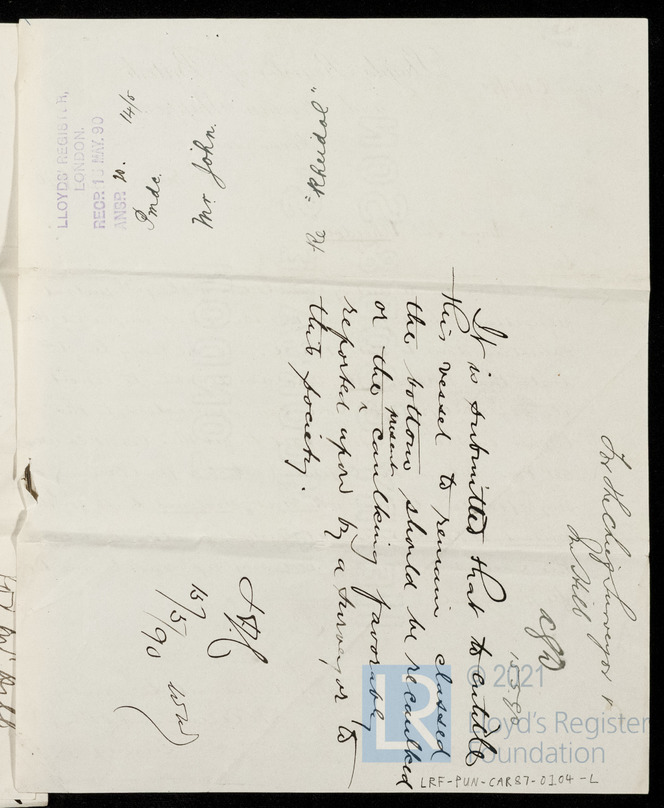 LLOYDS' REGISTER,
LONDON.
RECD. 1 MAY. 90
ANSD. 14/5
Mr. John.
Re "Rheidol"
For the Chief Surveyor &
Mr Hills
It is submitted that to entitle
this vessel to remain classed
the bottom should be recaulked
or the present caulking favorably
reported upon by a Surveyor to
this Society.
15/5/90
© 2021
Lloyd's Register
Foundation
LR
LRF-PUN-CAR87-0104-L